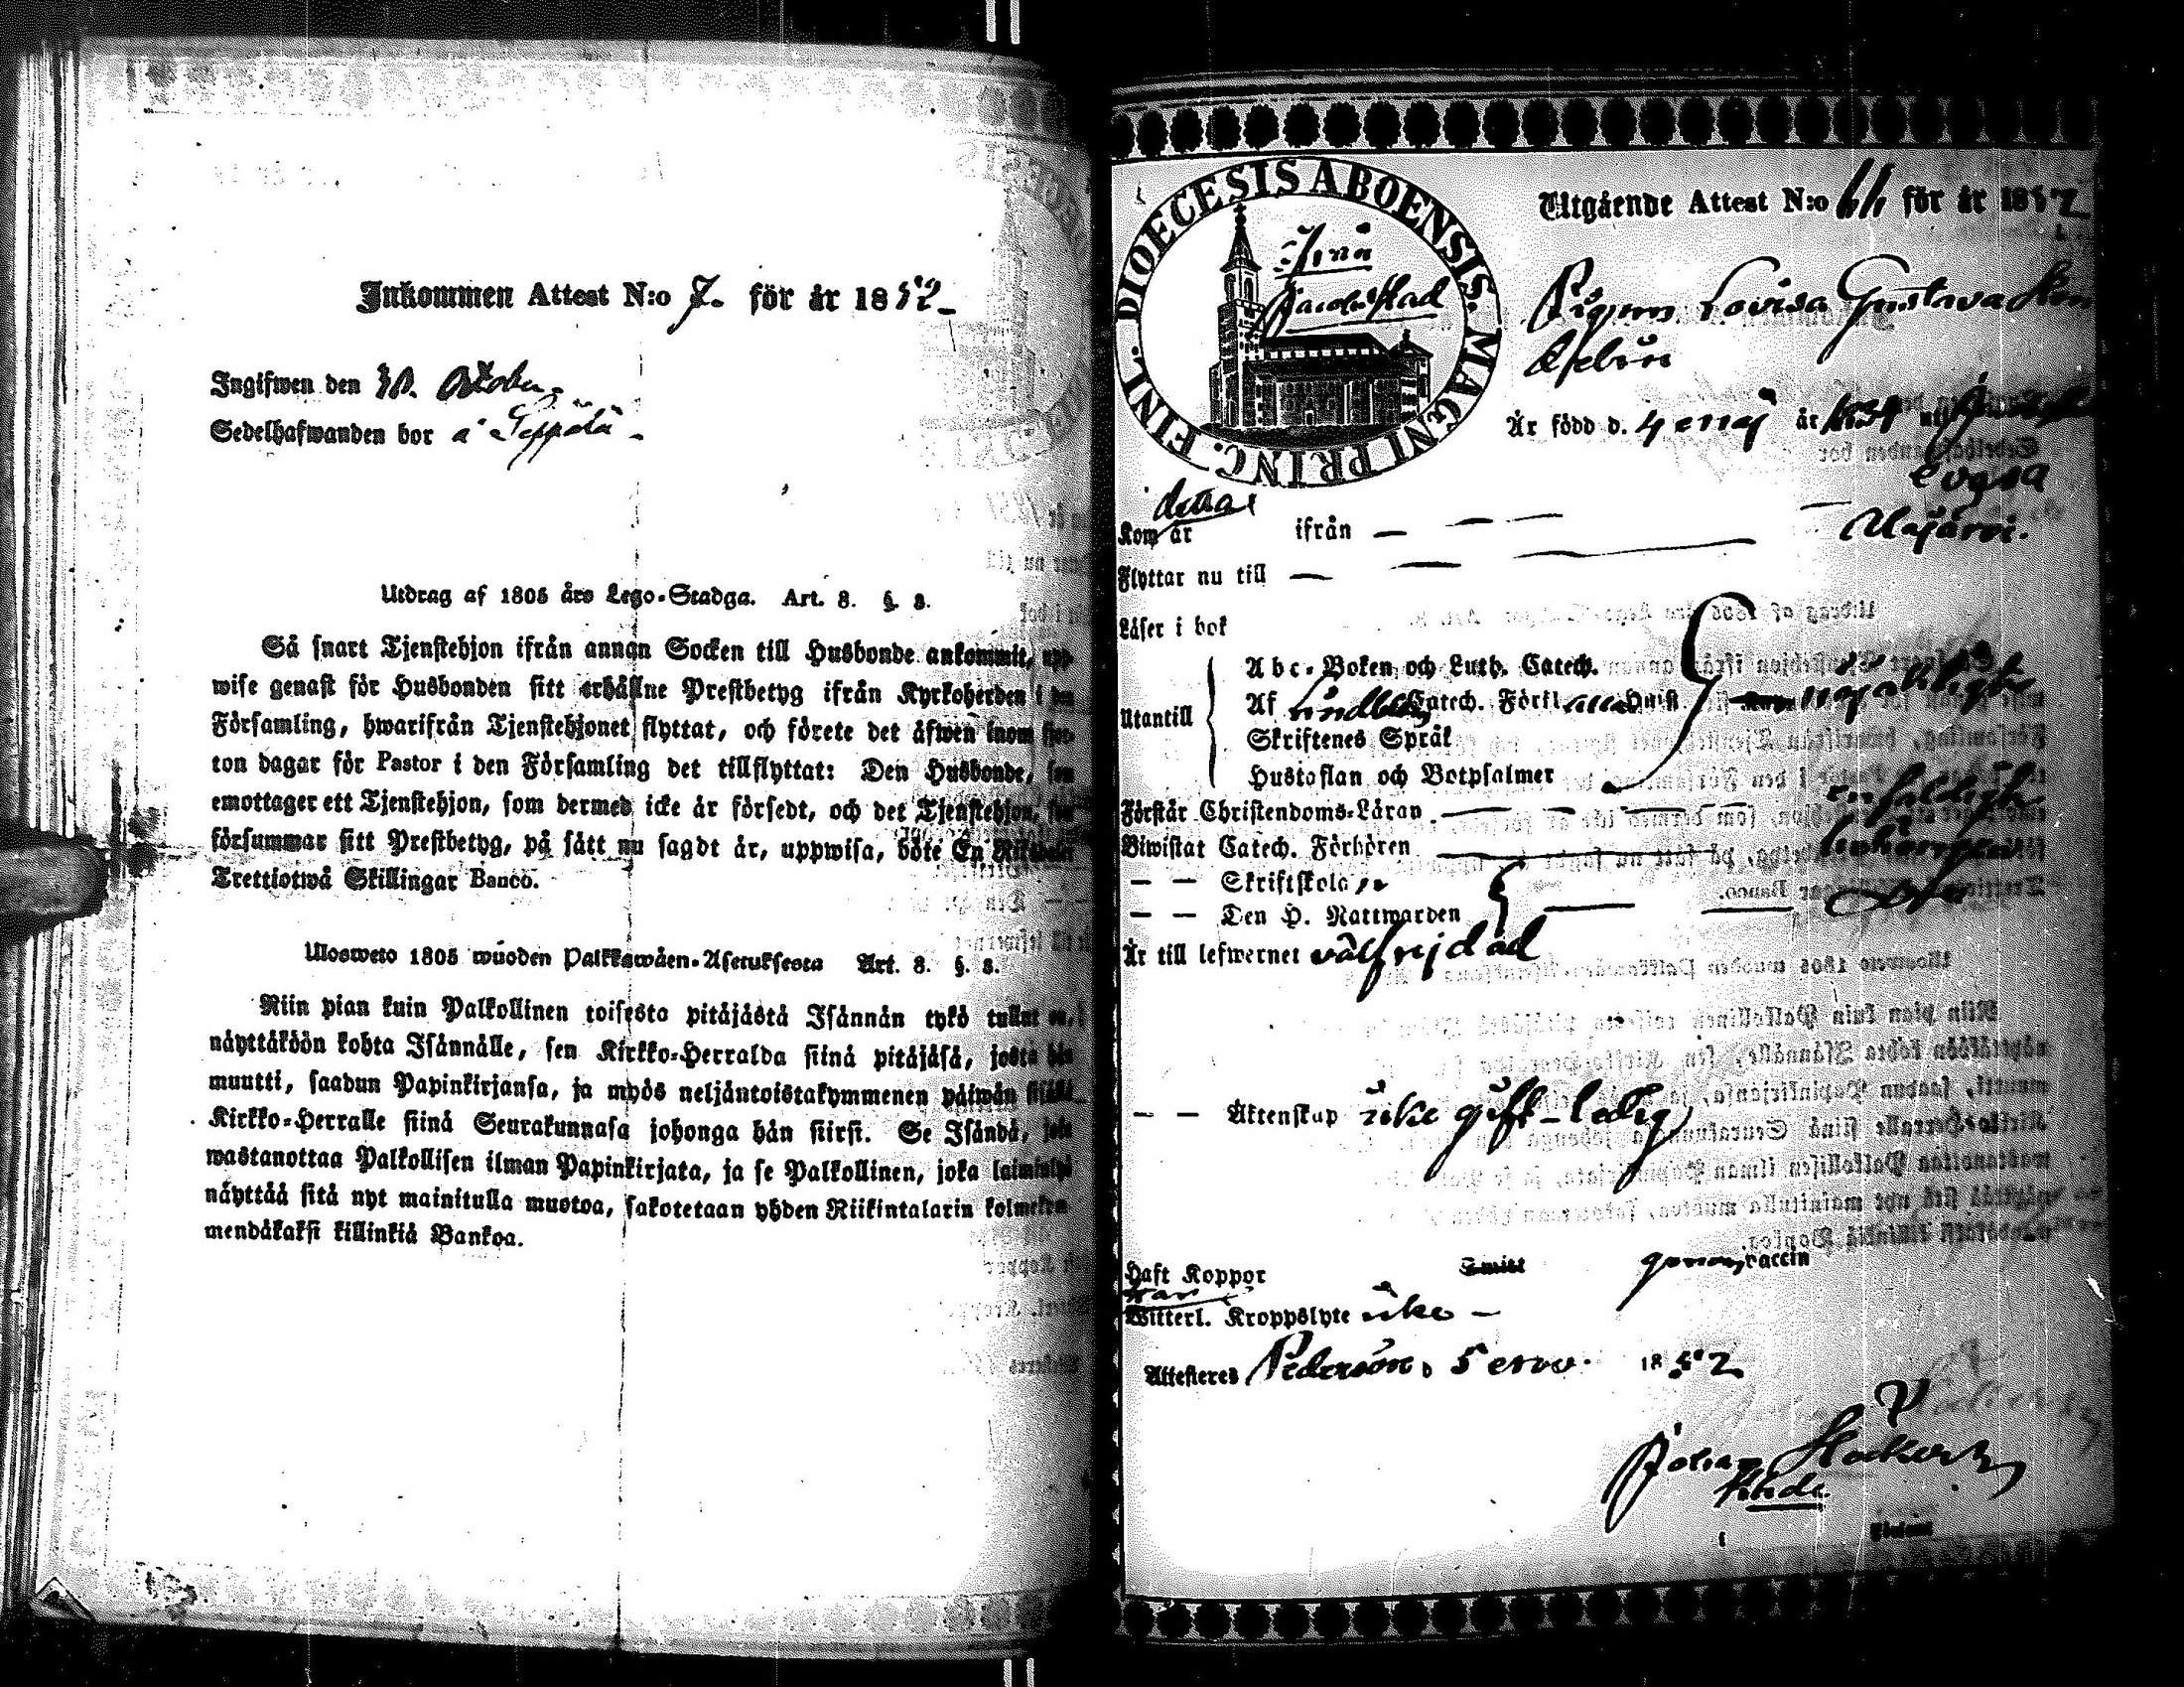 Inkommen Attest N:o 7. för år 1852
Ingifwen den 30. October
Sedelhafwanden bor å Seppälä
Utdrag af 1805 års Lego-Stadga. Art. 8. §. 8.
Så snart Tjenstehjon ifrån annan Socken till Husbonde ankommit, upp-
wise genast för Husbonden sitt erhållne Prestbetyg ifrån Kyrkoherden i den
Församling, hwarifrån Tjenstehjonet flyttat, och förete det äfwen inom fjor-
ton dagar för Pastor i den Församling det tillflyttat: Den Husbonde, som
emottager ett Tjenstehjon, som dermed icke är försedt, och det Tjenstehjon, som
försummar sitt Prestbetyg, på sätt nu sagdt är, uppwisa, böte En Riksdaler
Trettiotwå Skillingar Banco.
Ulosweto 1805 wuoden Palkkawäen-Asetuksesta Art. 8. §. 8.
Niin pian kuin Palkollinen toisesta pitäjästä Isännän tykö tullut on,
näyttäköön kohta Isännälle, sen Kirkko-Herralda siinä pitäjäsä, josta hän
muutti, saadun Papinkirjansa, ja myös neljäntoistakymmenen päiwän sisällä
Kirkko-Herralle siinä Seurakunnasa johonga hän siirsi. Se Isändä, joka
wastanottaa Palkollisen ilman Papinkirjata, ja se Palkollinen, joka laiminlyö
näyttää sitä nyt mainitulla muotoa, sakotetaan yhden Riikintalarin kolmekym-
mendäkaksi killinkiä Bankoa.
DIOECESIS ABOENSIS. MAGNI PRINC. FINL.
från
Jacobstad
Utgående Attest N:o 66 för år 1852
Pigan Lovisa Gustava
Är född d. 4 Maj år 1834 uti
Kom år detta ifrån —
Flyttar nu till —
Läser i bok
Utantill
Abc-Boken och Luth. Catech.
Af Lindbloms Catech. Förkl. Quist.
Skriftenes Språk
Hustaflan och Botpsalmer
Förstår Christendoms-Läran
enfaldigt
Biwistat Catech. Förhören
— — Skriftskola
— — Den H. Nattwarden
Är till lefwernet välfrejdad
— — Äktenskap icke gift - ledig
Haft Koppor genom vaccin
har
Witterl. Kroppslyte icke —
Attesteres Pedersöre d 5 Nov. 1852
Johan